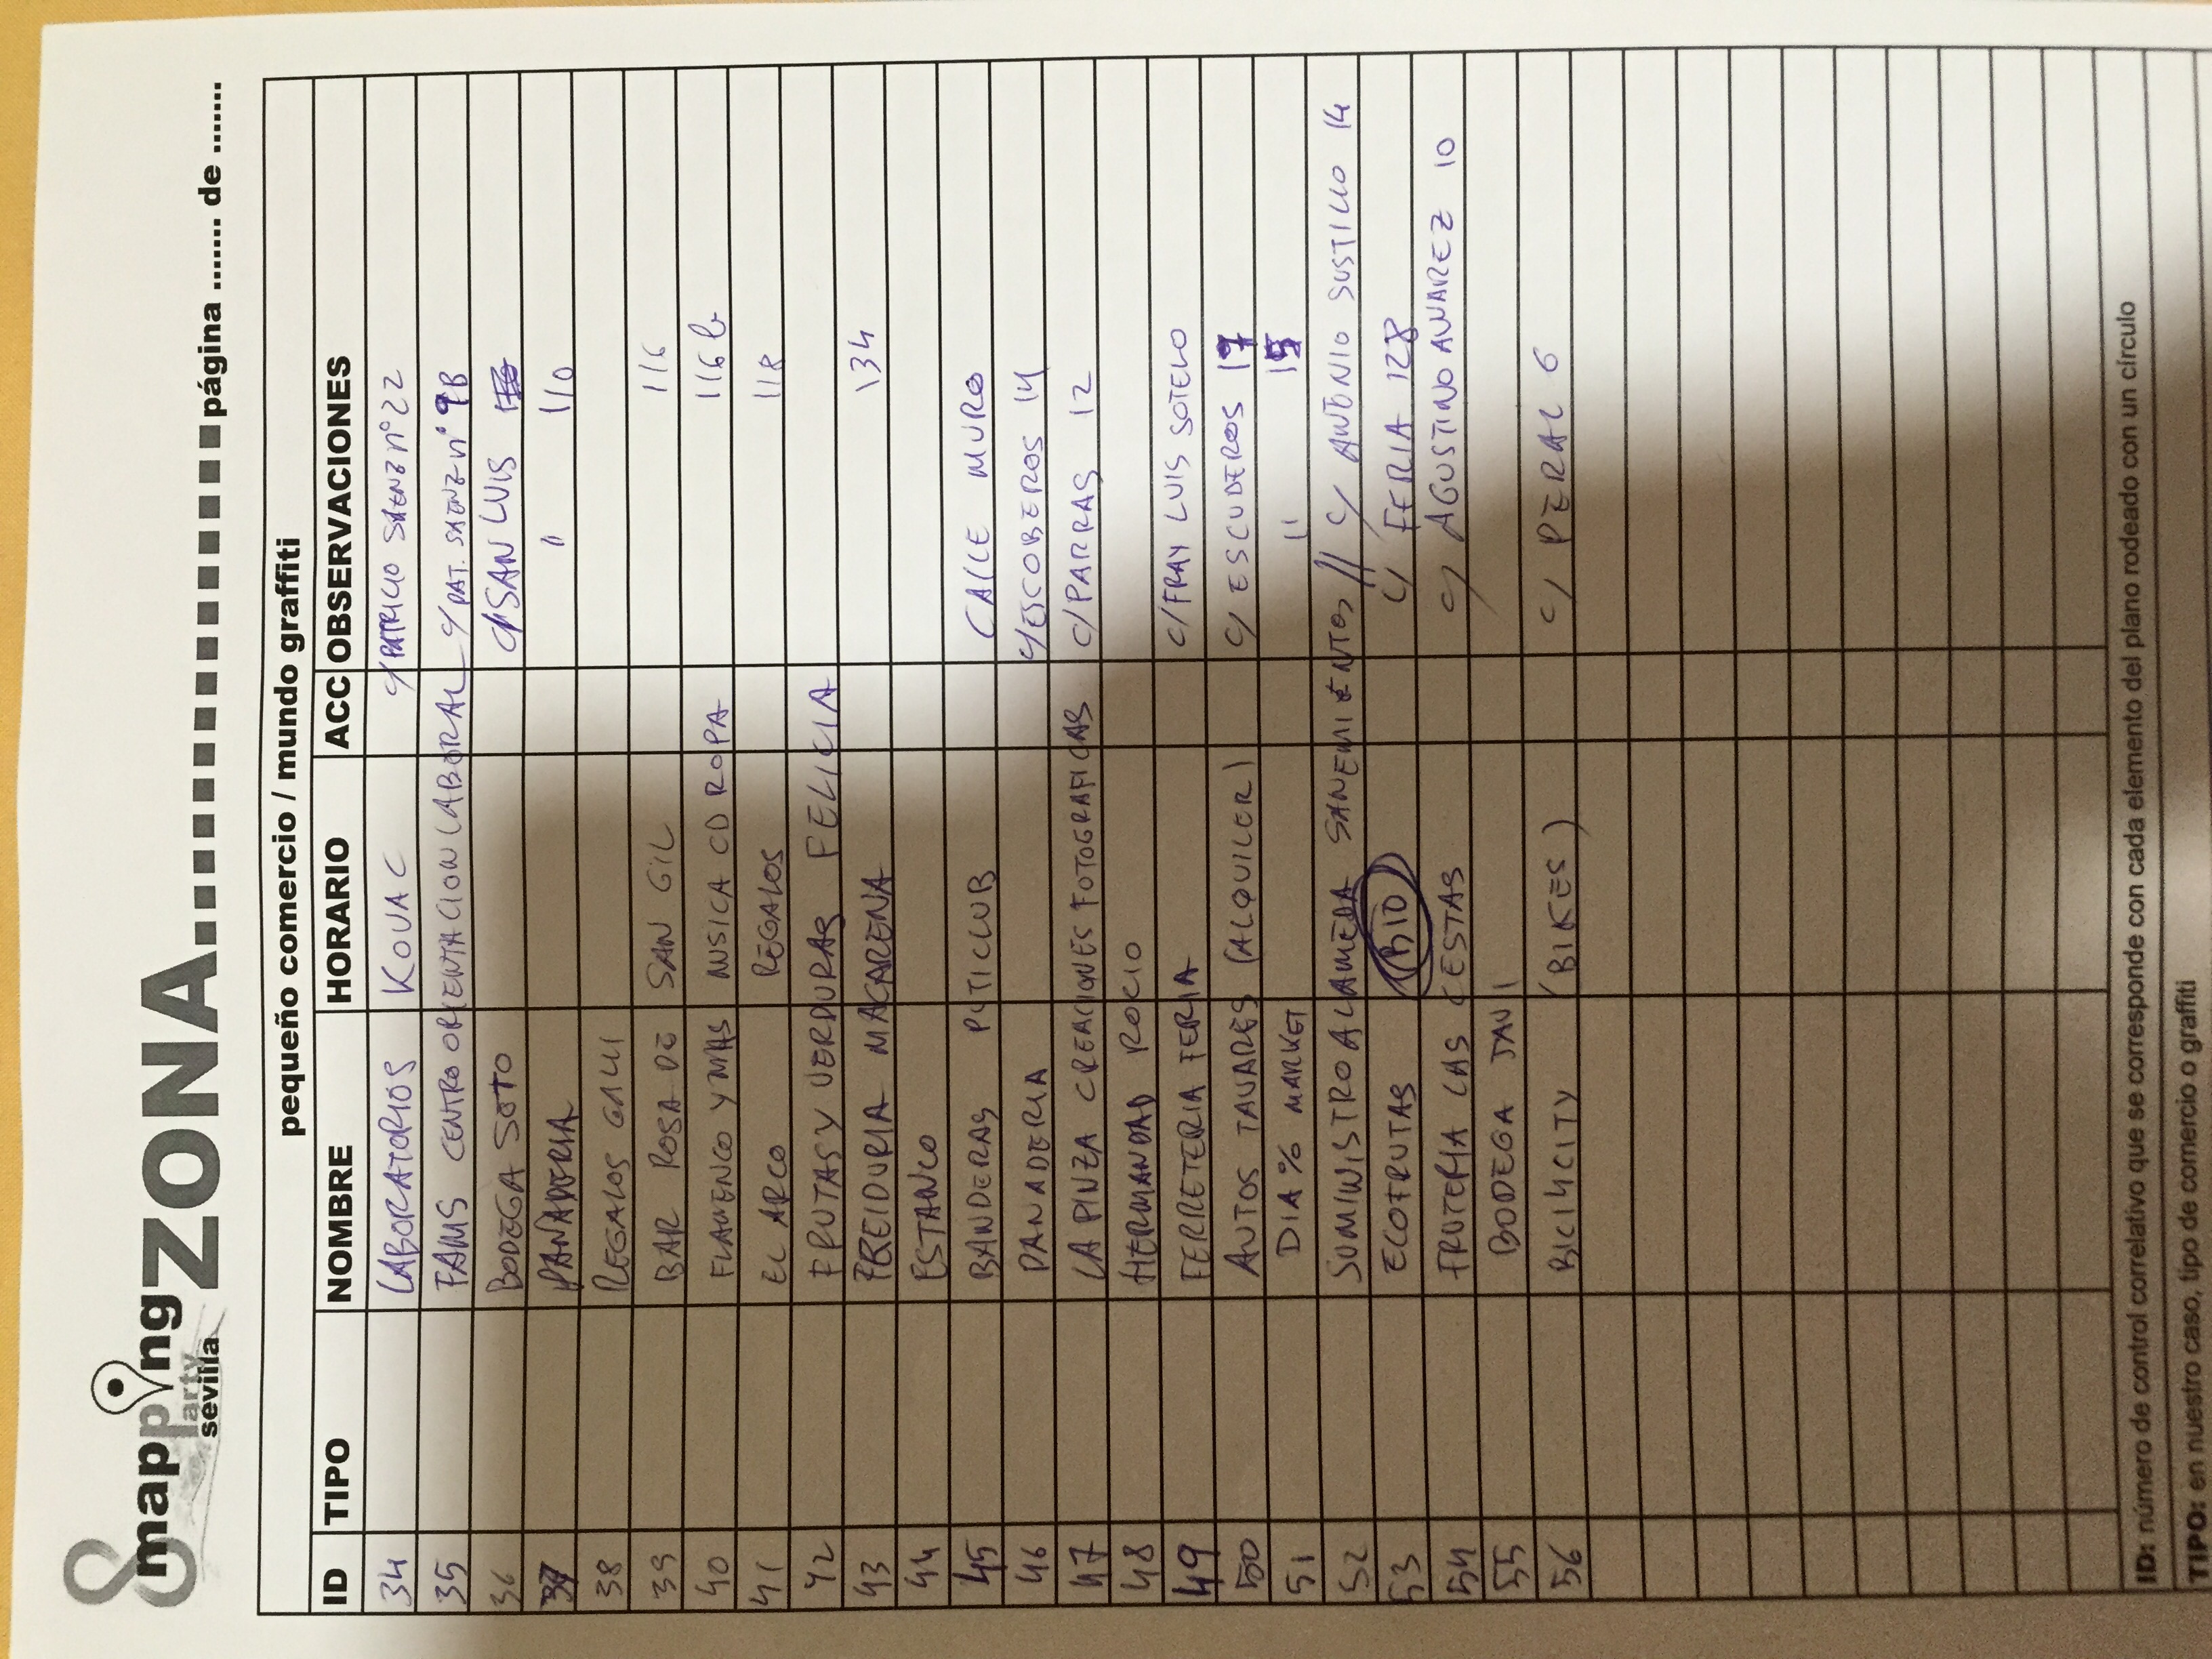 8 mapping party sevilla ZONA............... página ....... de .......
pequeño comercio / mundo graffiti
ID TIPO NOMBRE HORARIO ACC OBSERVACIONES
34 LABORATORIOS KOVAC c/ PATRICIO SAENZ nº 22
35 FAMS CENTRO ORIENTACION LABORAL c/ PAT. SAENZ nº 9B
36 BODEGA SOTO C/ SAN LUIS
37 PANADERIA " 110
38 REGALOS GALLI
39 BAR ROSA DE SAN GIL 116
40 FLAMENCO Y MAS MUSICA CD ROPA 116 b
41 EL ARCO REGALOS 118
42 FRUTAS Y VERDURAS FELICIA
43 FREIDURIA MACARENA 134
44 ESTANCO
45 BANDERAS PUTICLUB CALLE MURO
46 PANADERIA c/ ESCOBEROS 14
47 LA PINZA CREACIONES FOTOGRAFICAS C/ PARRAS 12
48 HERMANDAD ROCIO
49 FERRETERIA FERIA C/ FRAY LUIS SOTELO
50 AUTOS TAVARES (ALQUILER) C/ ESCUDEROS 17
51 DIA % MARKET " 15
52 SUMINISTRO ALAMEDA SANEMIENTOS // C/ ANTONIO SUSTILLO 14
53 ECOFRUTAS BIO C/ FERIA 128
54 FRUTERIA LAS CESTAS C/ AGUSTINO ALVAREZ 10
55 BODEGA JAVI
56 BICI4CITY (BIKES) C/ PERAL 6
ID: número de control correlativo que se corresponde con cada elemento del plano rodeado con un círculo
TIPO: en nuestro caso, tipo de comercio o graffiti